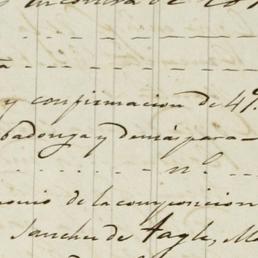 y confirmacion de 4º
badonga y demas para
nº
monio de la composicion
Sanchez de Tagle, M